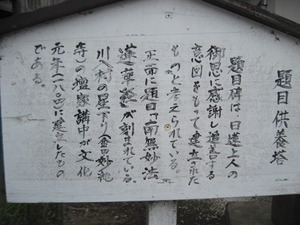 題目供養塔
題目碑は、日蓮上人の
御恩に感謝し追善する
意図をもって建立された
ものと考えられている。
正面に題目「南無妙法
蓮華経」が刻まれている。
川入村の星下り（妙純
寺）の檀家講中が文化
元年（一八〇四）に建立したもの
である。